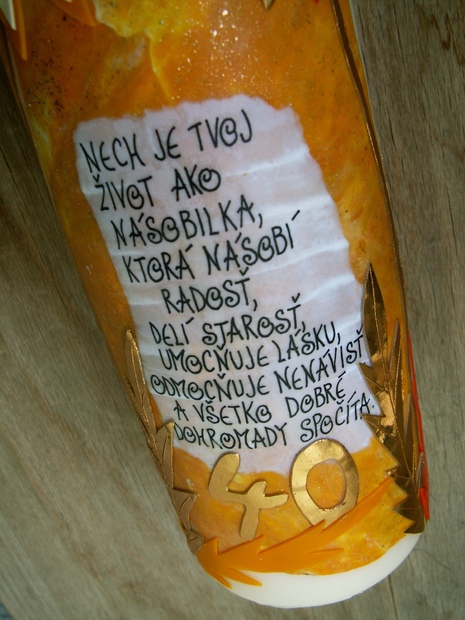 NECH JE TVOJ
ŽIVOT AKO
NÁSOBILKA,
KTORÁ NÁSOBÍ
RADOSŤ,
DELÍ STAROSŤ,
UMOCŇUJE LÁSKU,
ODMOCŇUJE NENÁVISŤ
A VŠETKO DOBRÉ
DOHROMADY SPOČÍTA.
40